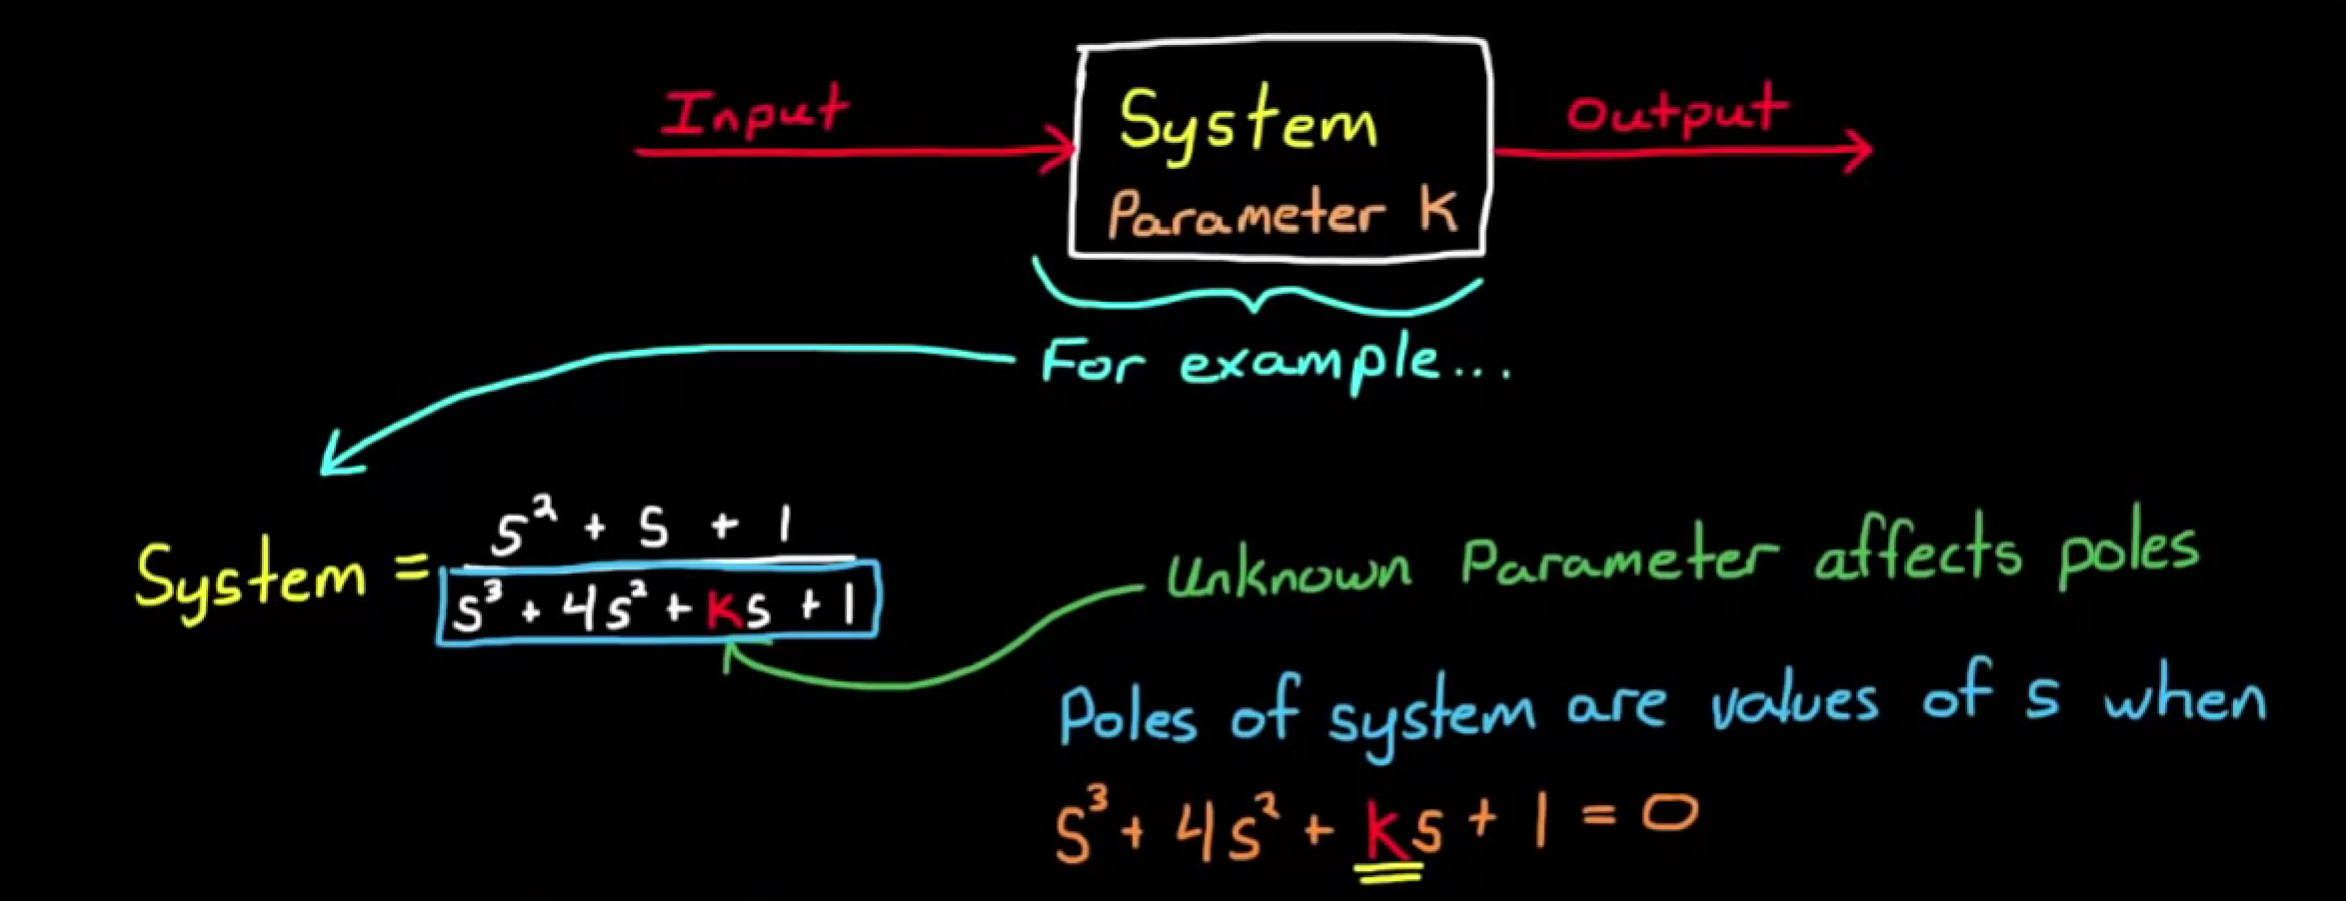 Input
System
Parameter K
Output
For example...
System = s² + s + 1
s³ + 4s² + Ks + 1
Unknown Parameter affects poles
Poles of system are values of s when
s³ + 4s² + Ks + 1 = 0